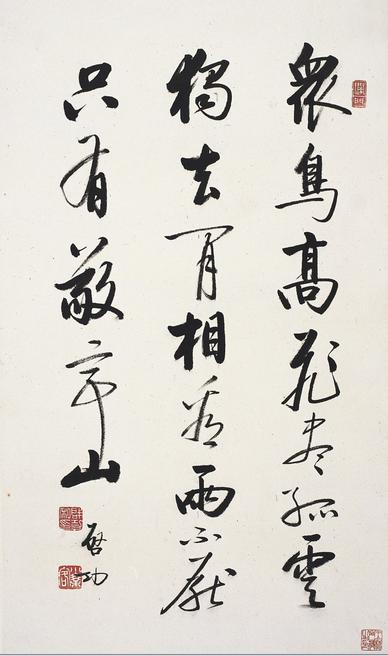 眾鳥高飛盡孤雲
獨去閒相看兩不厭
只有敬亭山
啟功